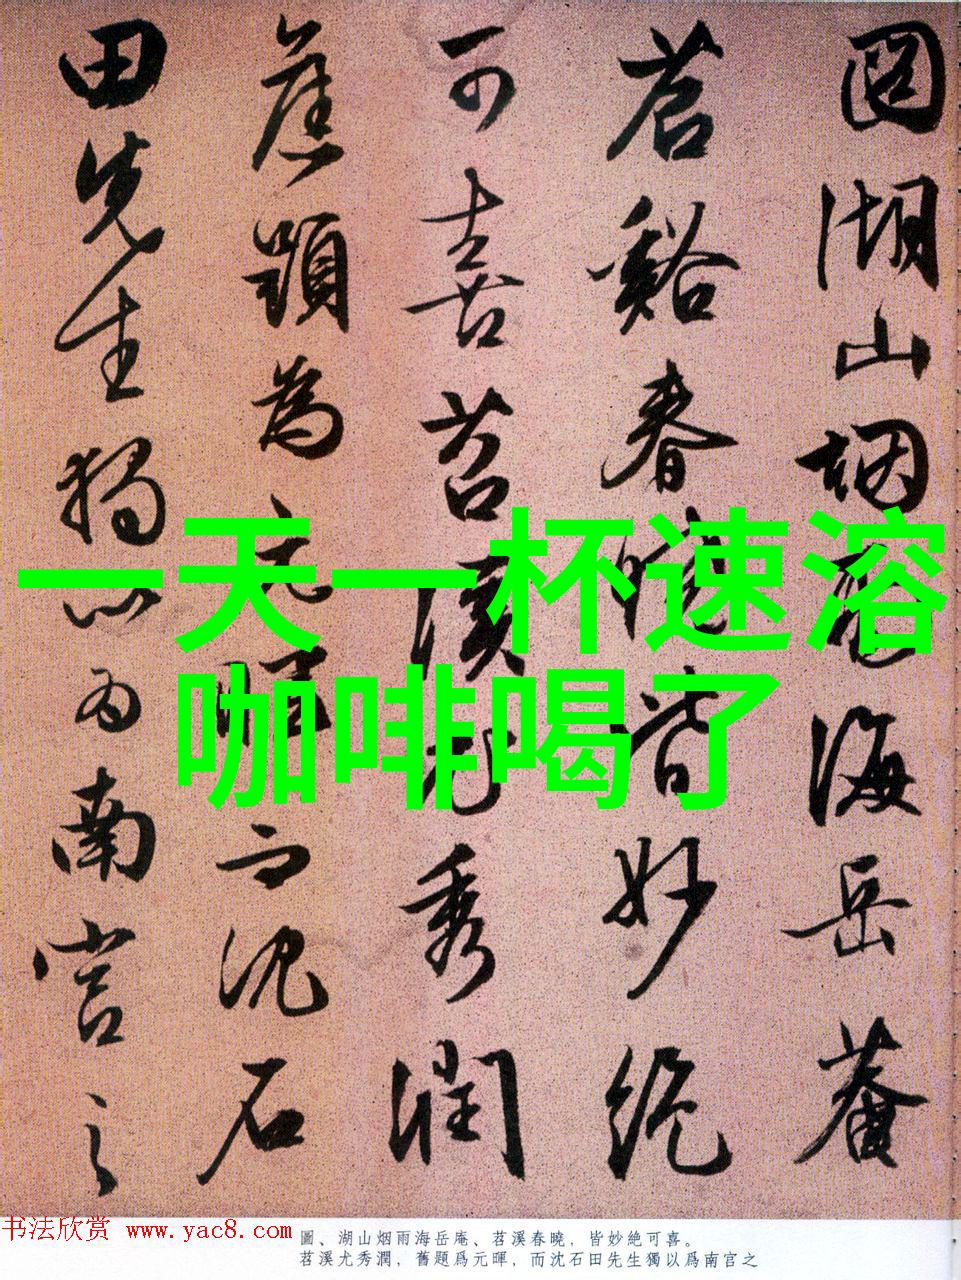 圖湖山烟雨海岳菴
苕谿春曉皆妙絶
可喜苕溪尤秀潤
舊題為元暉而沈石
田先生獨以為南宮之
一天一杯速溶
咖啡喝了
书法欣赏 www.yac8.com
圖、湖山烟雨海岳庵、苕溪春曉，皆妙絶可喜。
苕溪尤秀潤，舊題爲元暉，而沈石田先生獨以爲南宮之